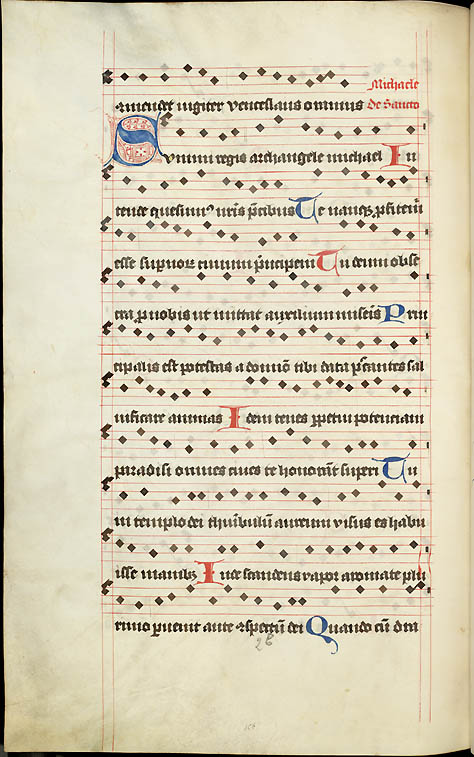 Michaele
ꝯmendet iugiter venceslaus omnibus De Sancto
Summi regis archangele michael In
tende quesumꝰ nr̄is p̄cibus Te namqꝫ ꝓfitem̄
esse suꝑnoꝝ ciuium p̄ncipem Tu deum obse
cra ꝑ nobis ut mittat auxilium miseris Prin
cipalis est potestas a domīo tibi data pccantes sal
uificare animas Idem tenes ꝑpetui potenciam
paradisi omnes ciues te honorāt superi Tu
in templo dei thuribulū aureum visus es habu
isse manibꝫ Inde scandens vapor aromate plu
rimo ꝑuenit ante ꝯspectū dei Quando cū dra